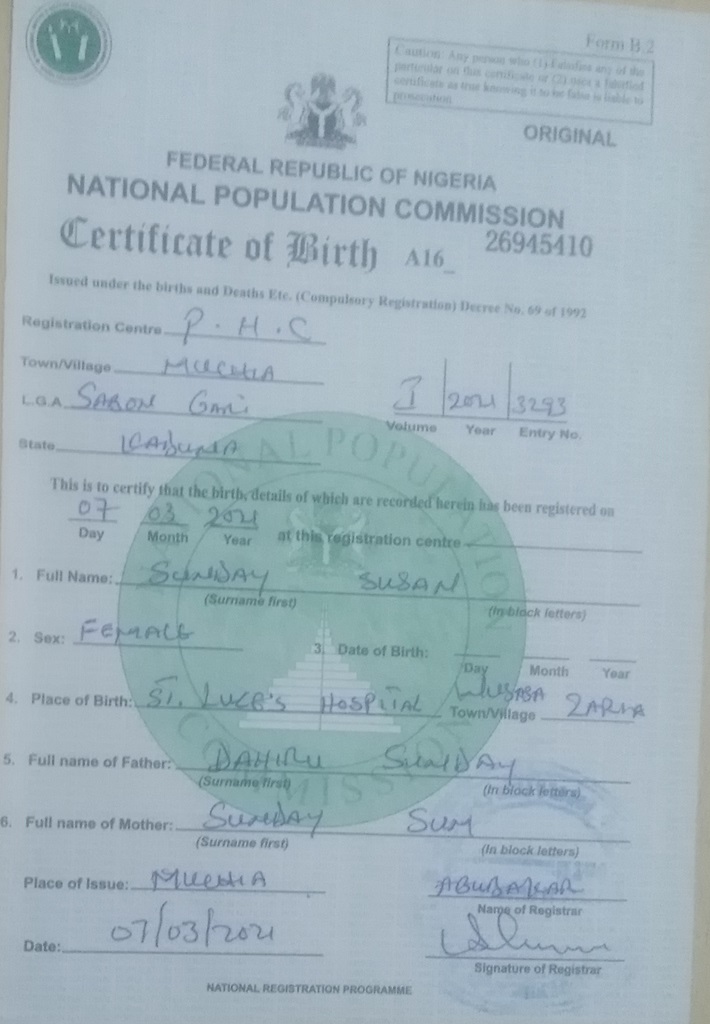 Form B.2
Caution: Any person who (1) falsifies any of the
particular on this certificate or (2) uses a falsified
certificate as true knowing it to be false is liable to
prosecution
ORIGINAL
FEDERAL REPUBLIC OF NIGERIA
NATIONAL POPULATION COMMISSION
Certificate of Birth A16_ 26945410
Issued under the births and Deaths Etc. (Compulsory Registration) Decree No. 69 of 1992
Registration Centre P.H.C
Town/Village MUCHIA
L.G.A. SABON GARI
I 2021 3293
Volume Year Entry No.
State KADUNA
This is to certify that the birth, details of which are recorded herein has been registered on
07 03 2021 at this registration centre
Day Month Year
1. Full Name: SUNDAY SUSAN
(Surname first) (In block letters)
2. Sex: FEMALE 3. Date of Birth:
Day Month Year
4. Place of Birth: ST. LUCE'S HOSPITAL WUSASA Town/Village ZARIA
5. Full name of Father: DAHIRU SUNDAY
(Surname first) (In block letters)
6. Full name of Mother: SUNDAY
(Surname first) (In block letters)
Place of Issue: MUCHIA ABUBAKAR
Name of Registrar
Date: 07/03/2021
Signature of Registrar
NATIONAL REGISTRATION PROGRAMME
NATIONAL POPULATION COMMISSION